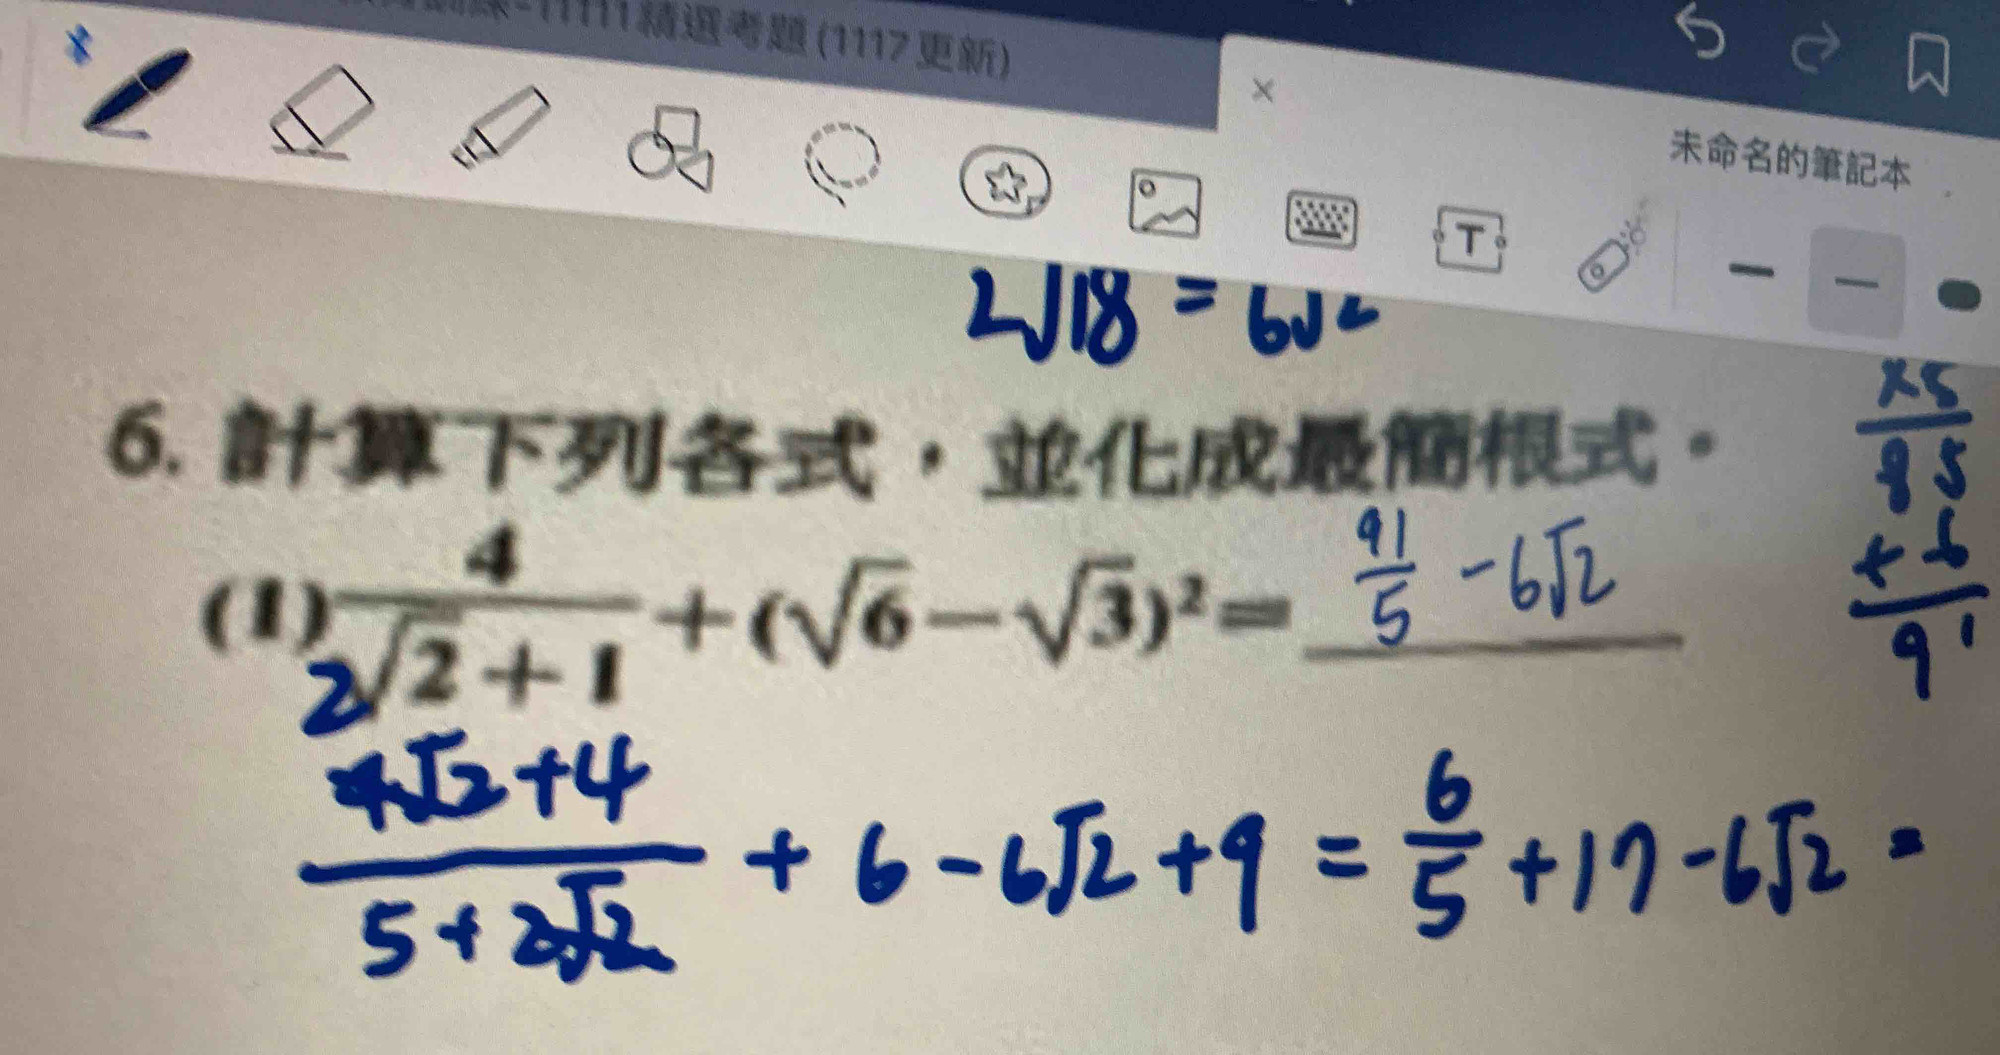 -11111精選考題 (1117更新)
×
未命名的筆記本
T
2√18 = 6√2
×5
85
+6
91
6. 計算下列各式，並化成最簡根式。
(1) 4/(√2+1) + (√6−√3)²= 91/5 − 6√2
2
(4√2+4)/(5+2√2) + 6 − 6√2 + 9 = 6/5 + 17 − 6√2 =